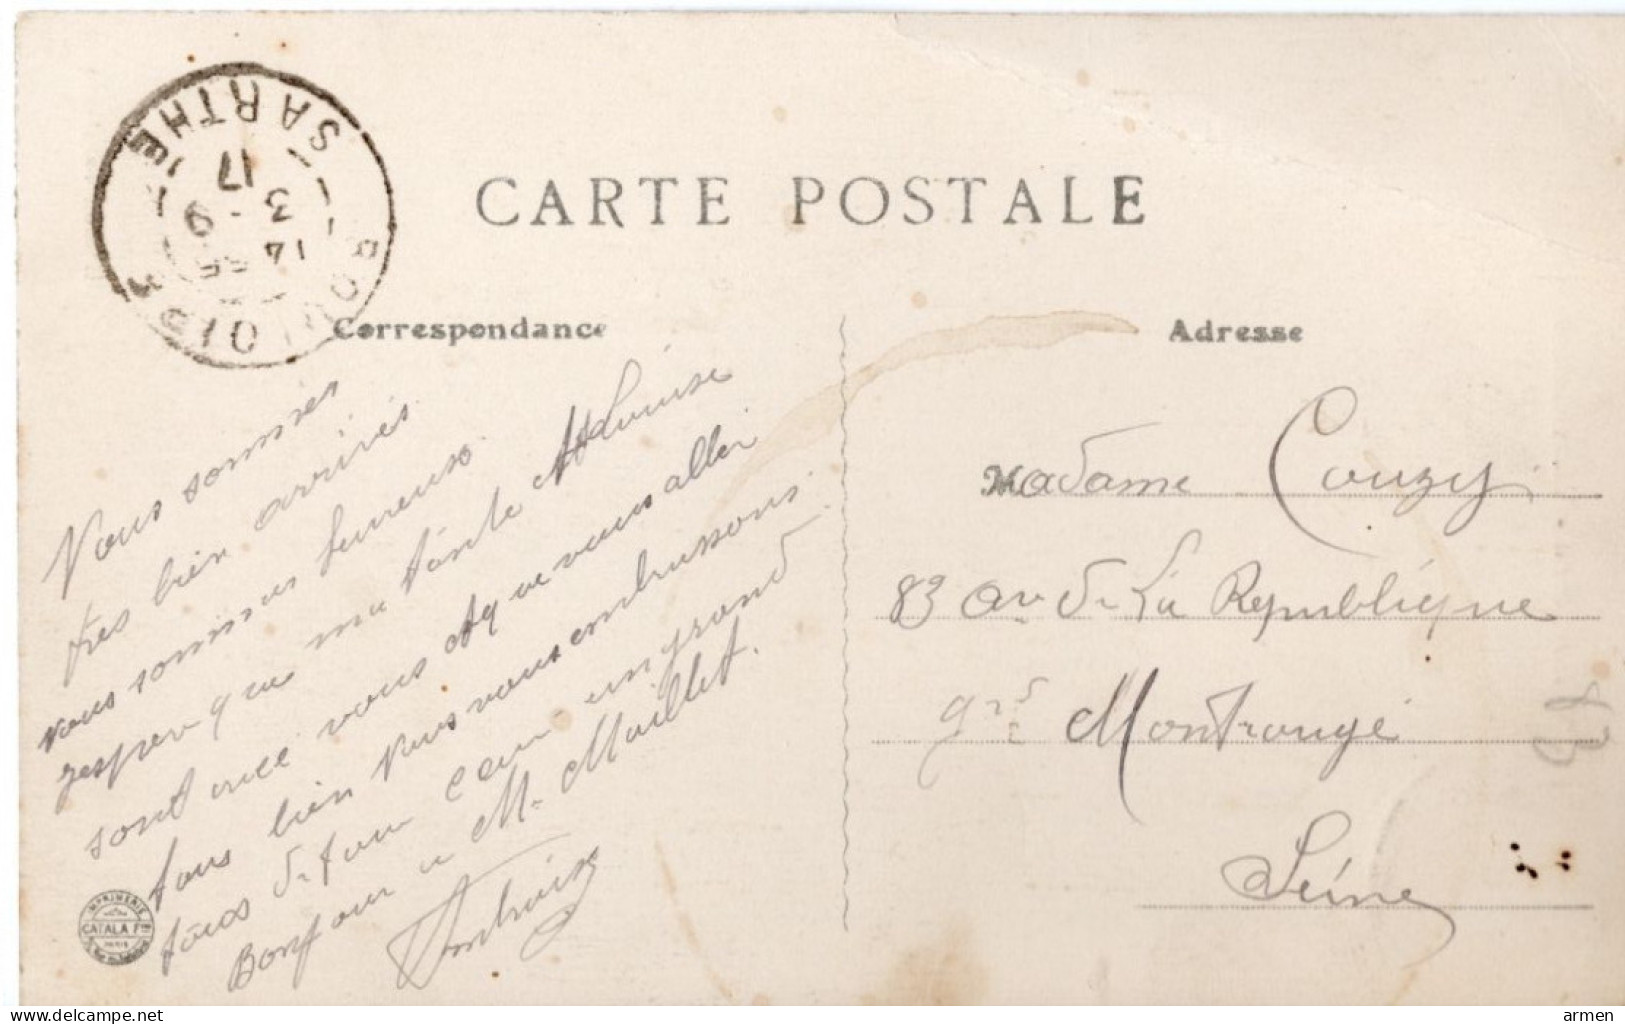 SARTHE
14 35
3 - 9
17
CARTE POSTALE
Correspondance
Adresse
Nous sommes
très bien arrivés
nous sommes heureux
j'espère que ma tante Louise
sont avec vous et que vous allez
tous bien Nous vous embrassons
tous de tout cœur un grand
Bonjour a M. Maillet.
Ambroise
Madame Couzy
83 av de La Republique
grd Montrouge
Seine
IMPRIMERIE
CATALA Fres
PARIS
www.delcampe.net
armen